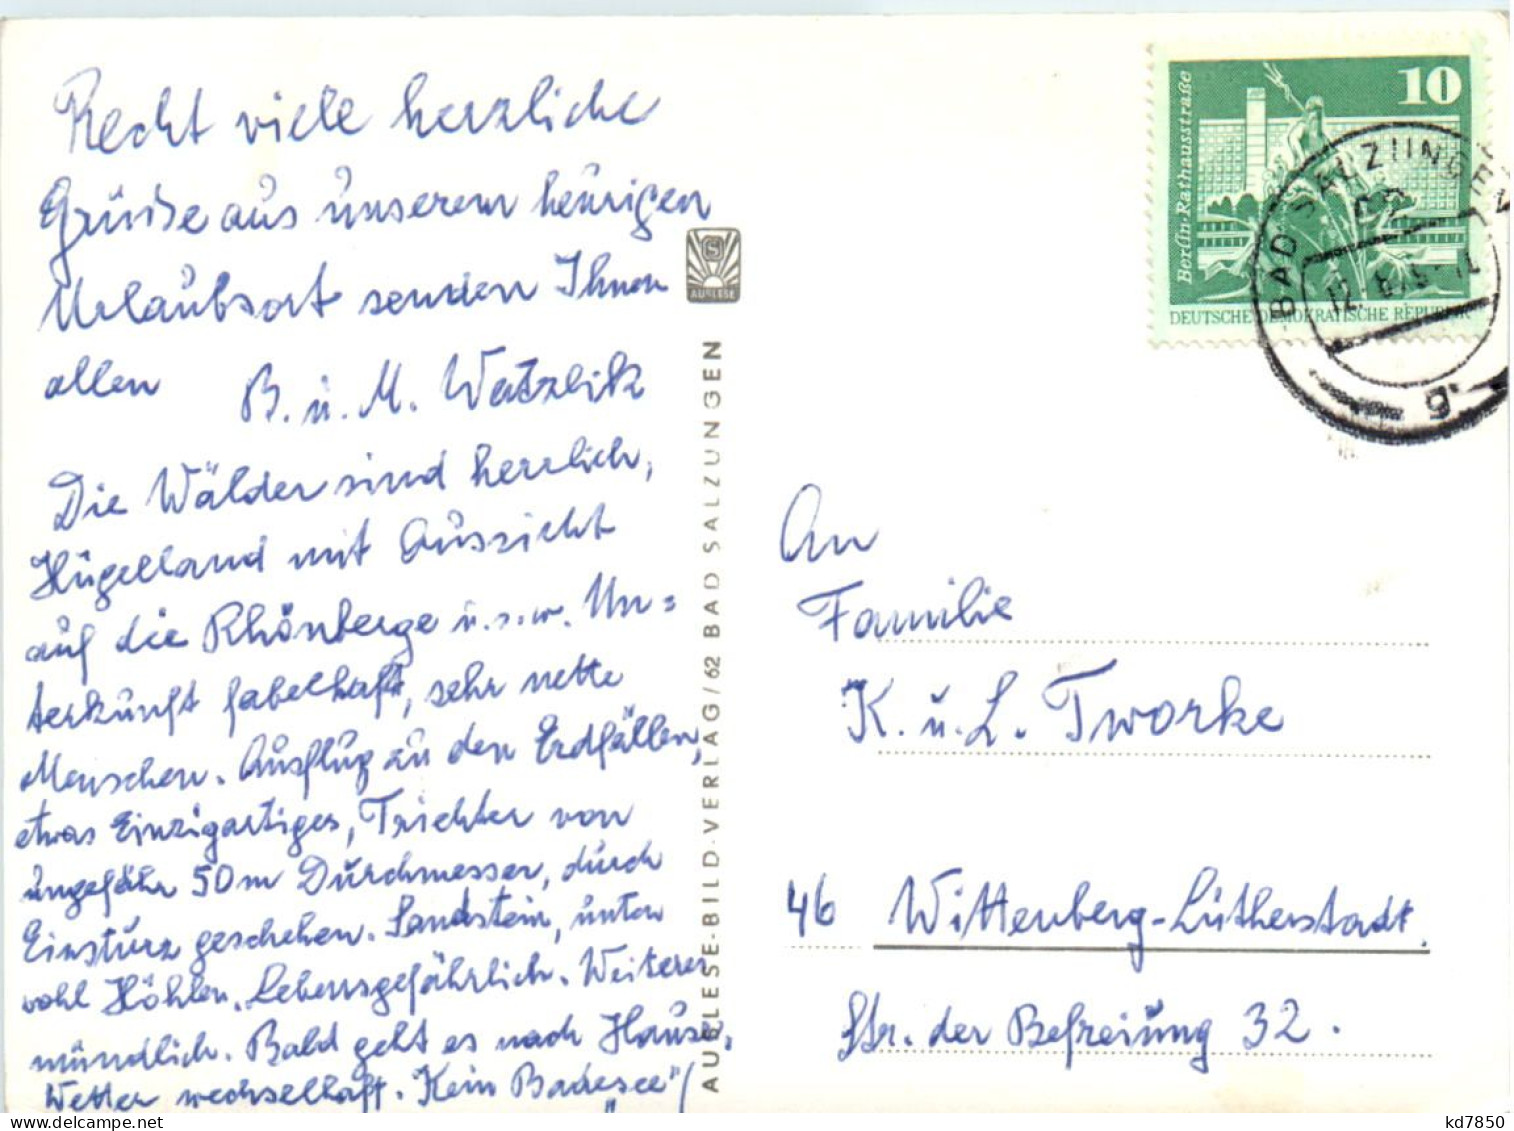 Recht viele herzliche
Grüsse aus unserem heurigen
Urlaubsort senden Ihnen
allen B. u. M. Watzlik
Die Wälder sind herrlich,
Hügelland mit Aussicht
auf die Rhönberge u.s.w. Un=
terkunft fabelhaft, sehr nette
Menschen. Ausflug zu den Erdfällen,
etwas Einzigartiges, Trichter von
ungefähr 50m Durchmesser, durch
Einsturz geschehen. Sandstein, unten
wohl Höhlen. Lebensgefährlich. Weiteres
mündlich. Bald geht es nach Hause.
Wetter wechselhaft. Kein "Badesee"!
AUSLESE
AUSLESE-BILD-VERLAG/62 BAD SALZUNGEN
10
Berlin·Rathausstraße
DEUTSCHE DEMOKRATISCHE REPUBLIK
BAD SALZUNGEN
g
An
Familie
K. u. L. Tworke
46 Wittenberg-Lutherstadt.
Str. der Befreiung 32.
kd7850